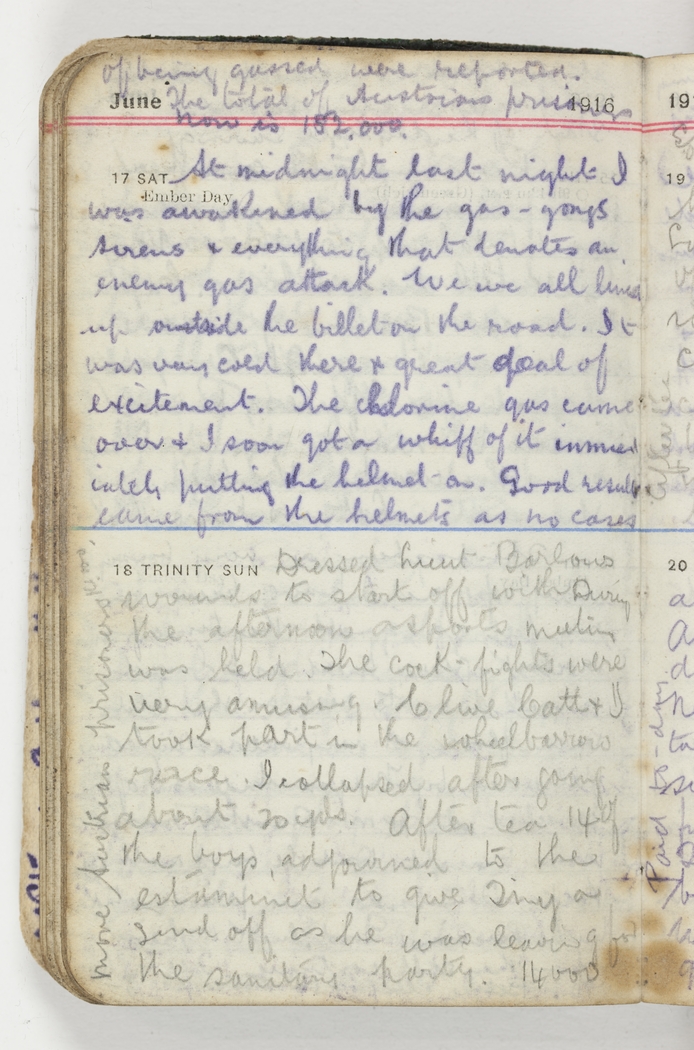 of being gassed were reported.
June The total of Austrian prisoners 1916
now is 182,000.
17 SAT At midnight last night I
Ember Day
was awakened by the gas-gongs
sirens & everything that denotes an
enemy gas attack. We we all lined
up outside the billet on the road. It
was very cold there & great deal of
excitement. The chlorine gas came
over & I soon got a whiff of it immed
iately putting the helmet on. Good results
came from the helmets as no cases
18 TRINITY SUN Dressed Lieut Barlows
wounds to start off with During
the afternoon a sports meeting
was held. The cock-fights were
very amusing. Clive Catt & I
took part in the wheelbarrow
race. I collapsed after going
about 20 yds. After tea 14 of
the boys adjourned to the
estaminet to give Tiny a
send off as he was leaving for
the sanitary party. 14000
more Austrian prisoners
19
20
Paid to-day